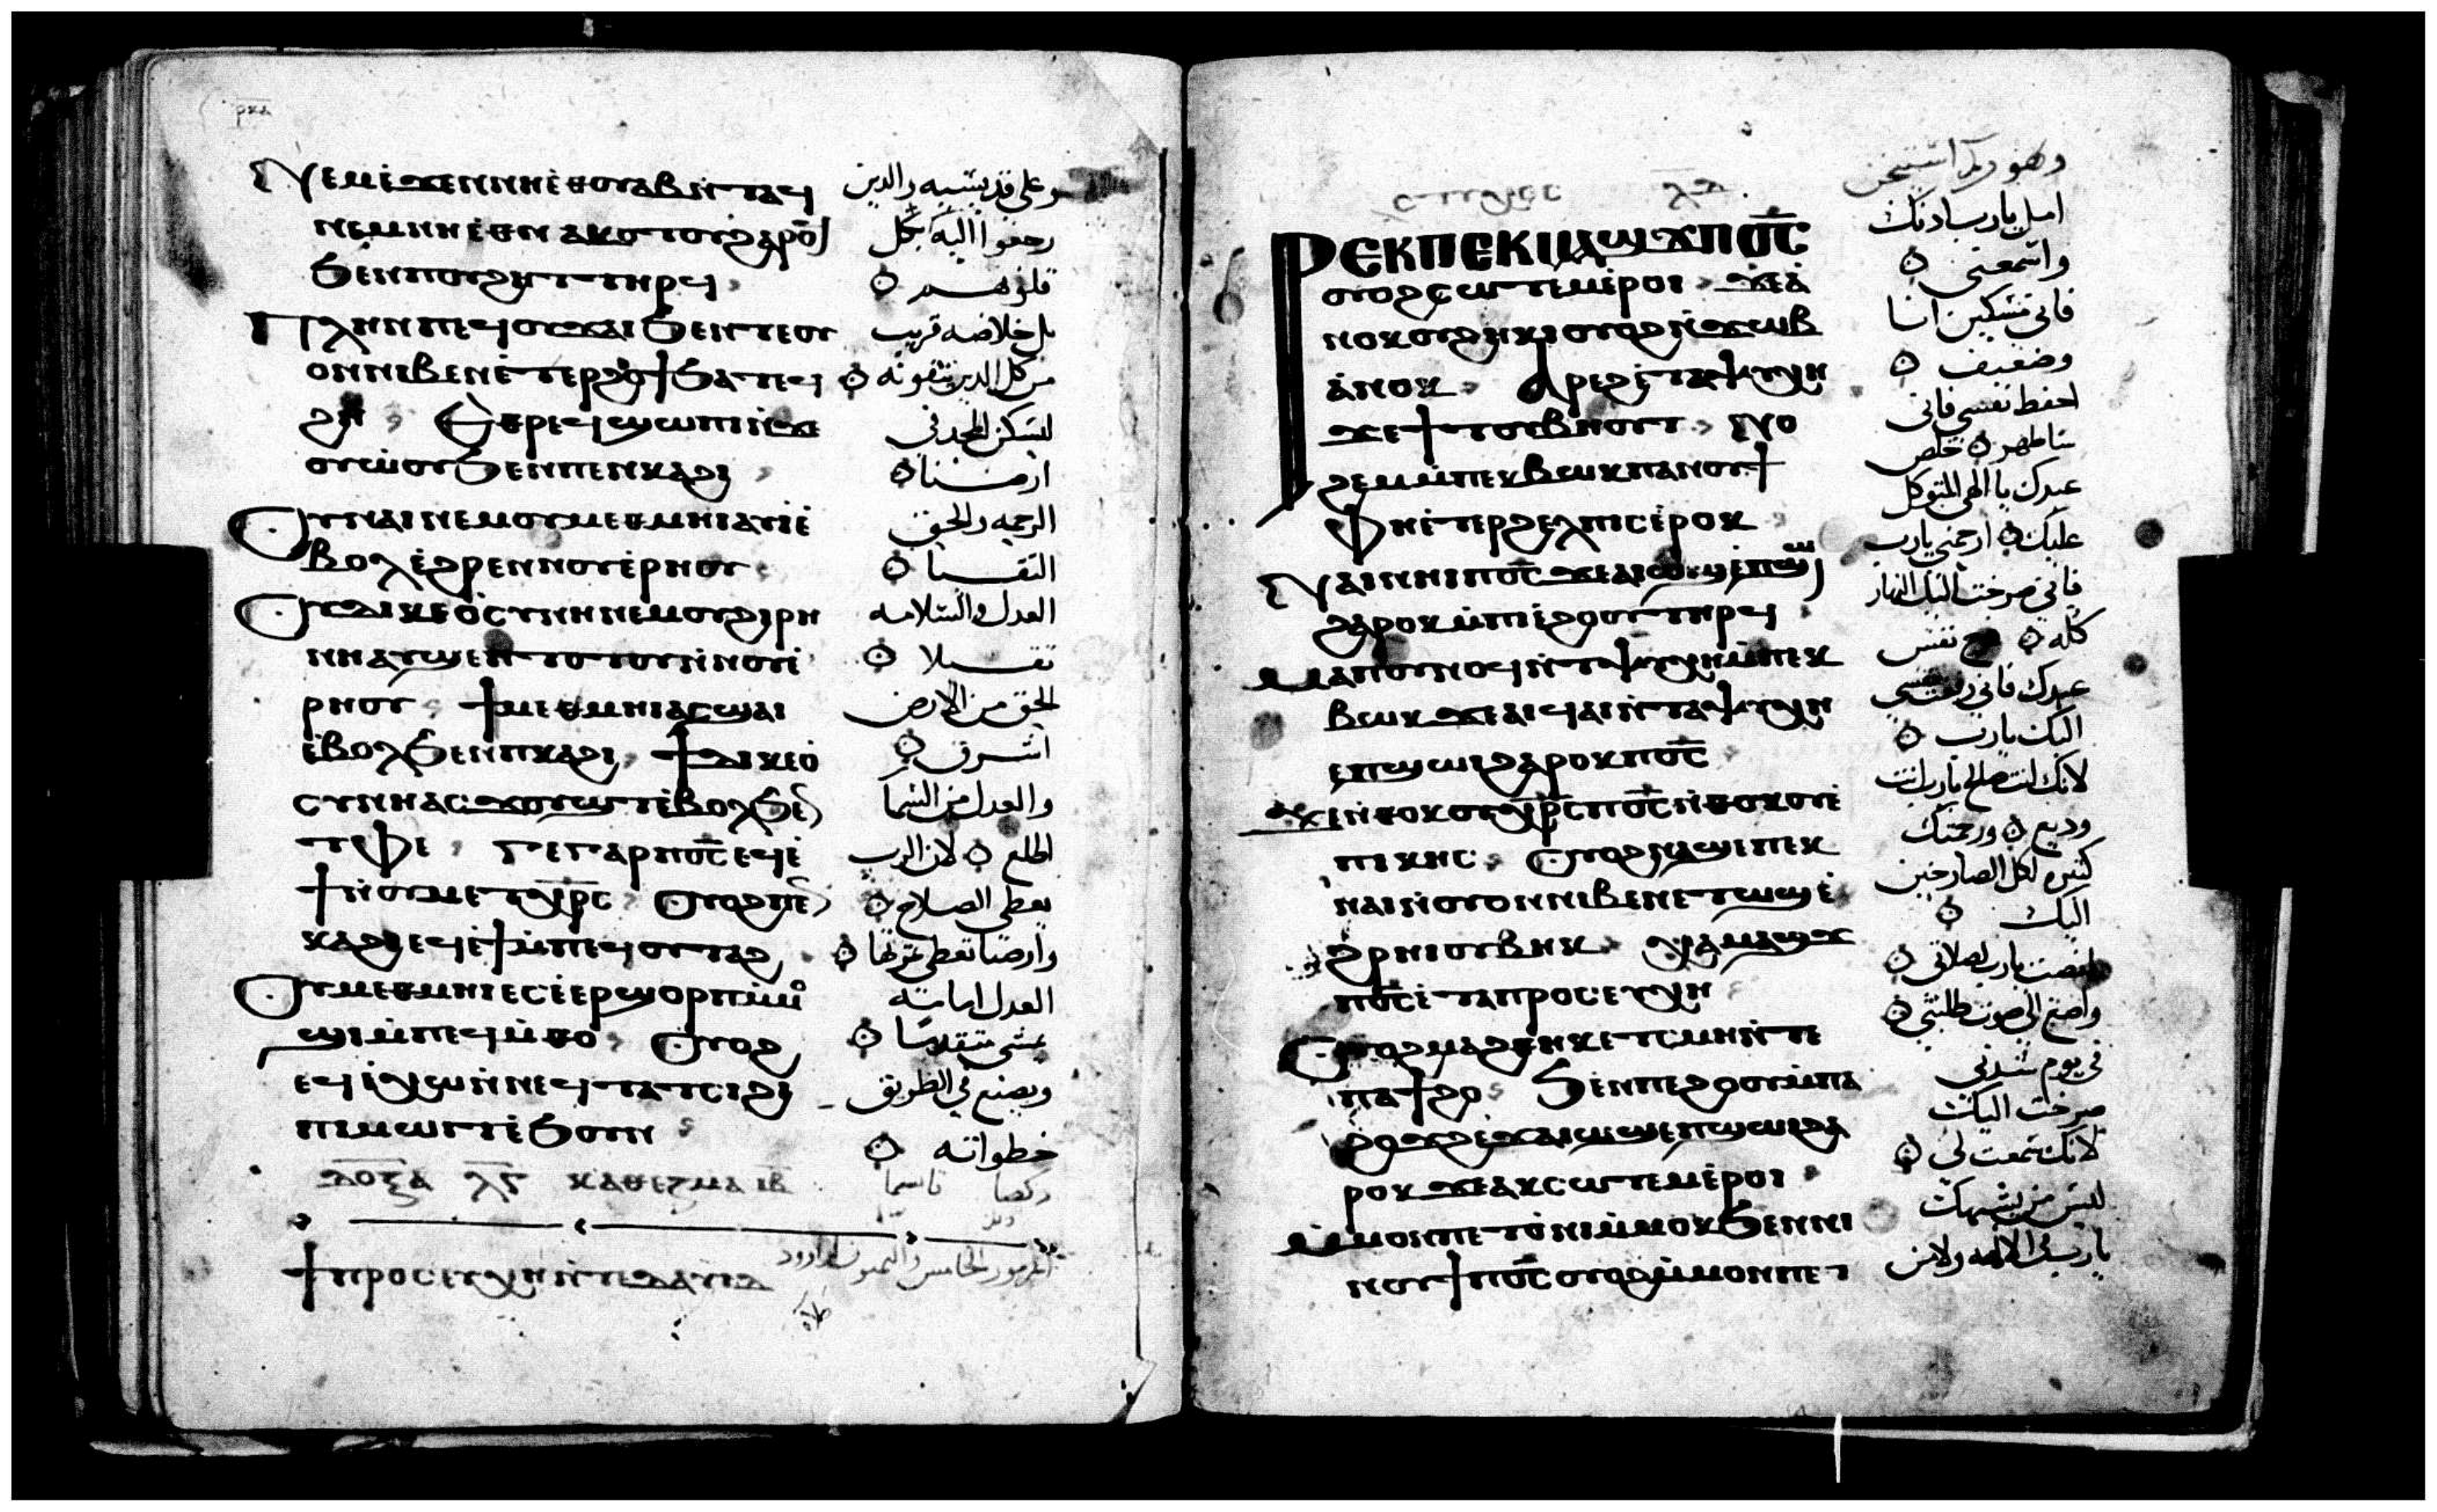 Ⲛⲉⲙⲉ̀ϫⲉⲛⲛⲏⲉ̇ⲑⲟⲩⲁⲃⲛ̀ⲧⲁϥ
ⲛⲉⲙⲛⲏⲉ̇ⲑⲛⲁⲕⲟⲧⲟⲩϩⲁⲣⲟϥ
ϧⲉⲛⲡⲟⲩϩⲏⲧⲧⲏⲣϥ
Ⲡⲗⲏⲛⲡⲉϥⲟⲩϫⲁⲓϧⲉⲛⲧⲉⲟⲩ
ⲟⲛⲛⲓⲃⲉⲛⲉ̇ⲧⲉⲣϩⲟϯϧⲁⲧⲉϥ
ϩⲏ Ⲉⲑⲣⲉϥϣⲱⲡⲓⲛ̇ϫⲉ
ⲟⲩⲱ̇ⲟⲩϧⲉⲛⲡⲉⲛⲕⲁϩⲓ
Ⲟⲩⲛⲁⲓⲛⲉⲙⲟⲩⲙⲉⲑⲙⲏⲓⲁⲩⲓ̇ⲉ̇
ⲃⲟⲗⲉ̇ϩⲣⲉⲛⲛⲟⲩⲉ̇ⲣⲏⲟⲩ
Ⲟⲩⲇⲓⲕⲉⲟ̇ⲥⲩⲛⲏⲛⲉⲙⲟⲩϩⲓⲣⲏ
ⲛⲏⲁⲩϣⲉⲛⲧⲟⲧⲟⲩⲛ̇ⲛⲟⲩⲉ̇
ⲣⲏⲟⲩ ϯⲙⲉⲑⲙⲏⲓⲁⲥϣⲁⲓ
ⲉ̇ⲃⲟⲗϧⲉⲛⲡⲕⲁϩⲓ ϯⲇⲓⲕⲉⲟ̇
ⲥⲩⲛⲏⲁⲥϫⲟⲩϣⲧⲉ̇ⲃⲟⲗϧⲉⲛ
ⲧⲫⲉ Ⲅⲉⲅⲁⲣⲡⲟ̅ⲥ̅ⲉϥⲉ̇
ϯⲛ̇ⲟⲩⲙⲉⲧⲭ̅ⲣ̅ⲥ Ⲟⲩⲟϩⲡⲉⲛ
ⲕⲁϩⲓⲉϥⲉ̇ϯⲙ̇ⲡⲉϥⲟⲩⲧⲁϩ
Ⲟⲩⲙⲉⲑⲙⲏⲓⲉⲥⲉ̇ⲉⲣϣⲟⲣⲡⲙ̇ⲙⲟ
ϣⲓⲙ̇ⲡⲉϥⲙ̇ⲑⲟ Ⲟⲩⲟϩ
ⲉϥⲉ̇ⲭⲱⲛ̇ⲛⲉϥⲧⲁⲧⲥⲓϩⲓ
ⲡⲓⲙⲱⲓⲧⲉ̇ϧⲟⲩⲛ
ⲇⲟⲝⲁ ⲗ̅ⲅ̅ ⲕⲁⲑⲉⲥⲙⲁ ⲓ̅ⲃ̅
ϯⲡⲣⲟⲥⲉⲩⲭⲏⲛ̇ⲧⲉⲇⲁⲩⲓⲇ
وعلى قديسيه والدين
رجعوا اليه بكل
قلوبهم
بل خلاصه قريب
من كل الدين يتقونه
ليسكن المجد في
ارضنا
الرحمه والحق
التقيا
العدل والسلامه
تقبلا
الحق من الارض
اشرق
والعدل من السما
اطلع لان الرب
يعطي الصلاح
وارضنا تعطي ثمرتها
العدل امامه
يمشي متقدما
ويصنع في الطريق
خطواته
المزمور الخامس والثمنون لداوود
ⲥⲧⲓⲭⲟⲥ ⲗ̅ⲇ̅
Ⲣⲉⲕⲡⲉⲕⲙⲁϣϫⲡⲟ̅ⲥ̅
ⲟⲩⲟϩⲥⲱⲧⲉⲙⲉ̇ⲣⲟⲓ ϫⲉⲁ̇
ⲛⲟⲕⲟⲩϩⲏⲕⲓⲟⲩⲟϩⲛ̇ϫⲱⲃ
ⲁ̇ⲛⲟⲕ Ⲁⲣⲉϩⲉ̇ⲧⲁⲯⲩⲭⲏ
ϫⲉϯⲧⲟⲩⲃⲏⲟⲩⲧ Ⲛⲟ
ϩⲉⲙⲙ̇ⲡⲉⲕⲃⲱⲕⲡⲁⲛⲟⲩϯ
Ⲫⲏⲉ̇ⲧⲉⲣϩⲉⲗⲡⲓⲥⲉ̇ⲣⲟⲕ
Ⲛⲁⲓⲛⲏⲓⲡⲟ̅ⲥ̅ϫⲉⲁⲓⲱϣⲉ̇ⲡϣⲱⲓ
ϩⲁⲣⲟⲕⲙ̇ⲡⲓⲉ̇ϩⲟⲟⲩⲧⲏⲣϥ
Ⲙⲁⲡⲟⲩⲛⲟϥⲛ̇ⲧⲁⲯⲩⲭⲏⲙ̇ⲡⲉⲕ
ⲃⲱⲕϫⲉⲁⲓϥⲁⲓⲛ̇ⲧⲁⲯⲩⲭⲏ
ⲉⲡϣⲱⲓϩⲁⲣⲟⲕⲡⲟ̅ⲥ̅
Ϫⲉⲛ̇ⲑⲟⲕⲟⲩⲭ̅ⲣ̅ⲥⲡⲟ̅ⲥ̅ⲛ̇ⲑⲟⲕⲟⲩⲉ̇
ⲡⲓⲕⲏⲥ Ⲟⲩⲟϩⲛⲁϣⲉⲡⲉⲕ
ⲛⲁⲓⲛ̇ⲟⲩⲟⲛⲛⲓⲃⲉⲛⲉⲧⲱϣⲉ̇
ϩⲣⲏⲓⲟⲩⲃⲏⲕ Ⲭⲁⲙⲁϣϫ
ⲡⲟ̅ⲥ̅ⲉ̇ⲧⲁⲡⲣⲟⲥⲉⲩⲭⲏ
Ⲟⲩⲟϩⲙⲁϩⲑⲏⲕⲉ̇ⲧⲥⲙⲏⲛ̇ⲧⲉ
ⲡⲁϯϩⲟ Ϧⲉⲛⲡⲉϩⲟⲟⲩⲙ̇ⲡⲁ
ϩⲟϫϩⲉϫⲁⲓⲱϣⲉⲡϣⲱⲓϩⲁ
ⲣⲟⲕϫⲉⲁⲕⲥⲱⲧⲉⲙⲉ̇ⲣⲟⲓ
Ⲙ̇ⲙⲟⲛⲡⲉⲧⲟ̇ⲛⲓⲙ̇ⲙⲟⲕϧⲉⲛⲛⲓ
ⲛⲟⲩϯⲡⲟ̅ⲥ̅ⲟⲩⲟϩⲙ̇ⲙⲟⲛⲡⲉⲧ
امل يارب ادنك
واسمعني
فاني مسكين انا
وضعيف
احفظ نفسي فاني
طاهر خلص
عبدك يا الهي المتوكل
عليك ارحمني يارب
فاني صرخت اليك النهار
كله فرح نفس
عبدك فاني رفعت نفسي
اليك يارب
لانك انت صالح يارب انت
وديع ورحمتك
كثيره لكل الصارخين
اليك
انصت يارب لصلاتي
واصغ الى صوت طلبتي
في يوم شدتي
صرخت اليك
لانك سمعت لي
ليس من يشبهك
يارب في الالهه ولا من